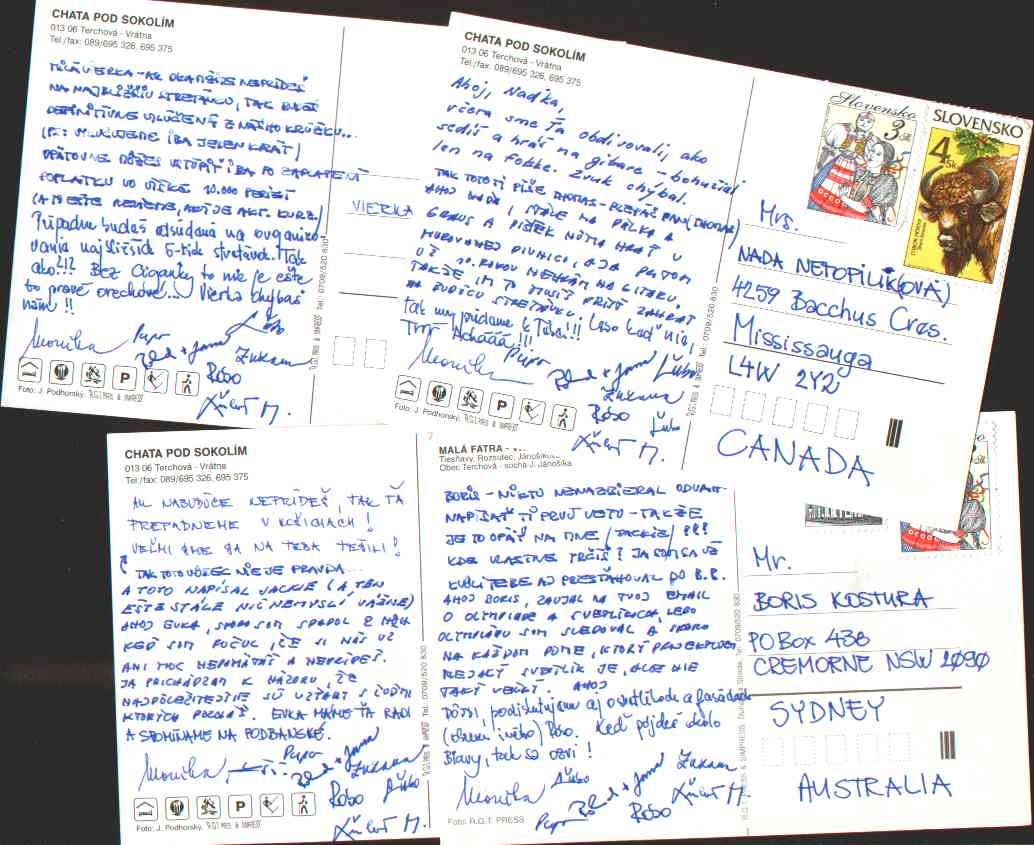 CHATA POD SOKOLÍM
013 06 Terchová - Vrátna
Tel./fax: 089/695 326, 695 375
MILÁ VIERKA - AK OKAMŽITE NEPRÍDEŠ
NA NAJBLIŽŠIU STRETÁVKU, TAK BUDEŠ
DEFINITÍVNE VYLÚČENÁ Z NÁŠHO KRÚŽKU...
IBA JEDEN KRÁT)
OPÄTOVNE MÔŽEŠ VSTÚPIŤ IBA PO ZAPLATENÍ
POPLATKU VO VÝŠKE 10.000
Prípadne budeš odsúdená na organizo-
vania najbližších 5-tich stretávok. Tak
ako!!! Bez Cigánky to nie je ešte
to pravé orechové... Vierka chýbaš
nám!!
Monika
Pupo
Ľubo
Zuzana
Robo
VIERKA
Foto: J. Podhorský, R.G.T. PRESS & SIMPRESS
Tel.: 0709/520 830
CHATA POD SOKOLÍM
013 06 Terchová - Vrátna
Tel./fax: 089/695 326, 695 375
Ahoj, Nadka,
včera sme Ťa obdivovali, ako
sedíš a hráš na gitare - bohužiaľ
len na fotke. Zvuk chýbal.
TAK TOTO TI PÍŠE
AHOJ NAĎA
MUROVANEJ PIVNICI, A JA PRITOM
UŽ 10 ROKOV NEHRÁM NA GITARU.
TAKŽE IM TO MUSÍŠ PRÍSŤ ZAHRAŤ
NA BUDÚCU STRETÁVKU. Lebo keď nie,
tak my prídeme k Tebe!!!
Monika
Pupo
Ľubo
Zuzana
Robo
Foto: J. Podhorský, R.G.T. PRESS & SIMPRESS
Tel.: 0709/520 830
Slovensko
3 Sk
SLOVENSKO
4 Sk
Mrs.
NADA NETOPILIK(OVÁ)
4259 Bacchus Cres.
Mississauga
L4W 2Y2
CANADA
CHATA POD SOKOLÍM
013 06 Terchová - Vrátna
Tel./fax: 089/695 326, 695 375
AK NABUDÚCE NEPRÍDEŠ, TAK ŤA
PREPADNEME V KOŠICIACH!
VEĽMI SME SA NA TEBA TEŠILI!
TAK TOTO VÔBEC NIE JE PRAVDA
A TOTO NAPÍSAL JACKIE (A TEN
EŠTE STÁLE NIČ NEMYSLÍ VÁŽNE)
AHOJ EVKA, SKORO SOM SPADOL Z NÔH
KEĎ SOM POČUL, ŽE SI NÁS UŽ
ANI MOC NEPAMÄTÁŠ A NEPRÍDEŠ.
JA PRICHÁDZAM K NÁZORU, ŽE
NAJDÔLEŽITEJŠIE SÚ VZŤAHY S ĽUĎMI
KTORÝCH POZNÁŠ. EVKA MÁME ŤA RADI
A SPOMÍNAME NA PODBANSKÉ.
Monika,
Pupo
Zuzana
Robo
Ľubo
Foto: J. Podhorský, R.G.T. PRESS & SIMPRESS
Tel.: 0709/520 830
MALÁ FATRA -
Tiesňavy, Rozsutec, Jánošíkove
Obec Terchová - socha J. Jánošíka
BORIS - NIKTO NENAZBIERAL ODVAHU
NAPÍSAŤ TI PRVÚ VETU - TAKŽE
JE TO OPÄŤ NA MNE (JACKIE)
KDE VLASTNE TRČÍŠ? JA SOM SA UŽ
KVÔLI TEBE AJ PRESŤAHOVAL DO B.B.
AHOJ BORIS, ZAUJAL MA TVOJ EMAIL
O OLYMPIÁDE A SVETLÁCH, LEBO
OLYMPIÁDU SOM SLEDOVAL A SKORO
NA KAŽDOM DOME, KTORÝ PROJEKTUJEM
NEJAKÝ SVETLÍK JE, ALE NIE
TAKÝ VEĽKÝ. AHOJ
podiskutujeme aj o svetlíkoch a fasádach
(okrem iného) Robo. Keď pôjdeš okolo
Blavy, tak sa ozvi!
Monika
Ľubo
Pupo
Zuzana
Robo
Foto: R.G.T. PRESS
R.G.T. PRESS & SIMPRESS
0709/520 830
Mr.
BORIS KOSTURA
PO Box 438
CREMORNE NSW 2090
SYDNEY
AUSTRALIA